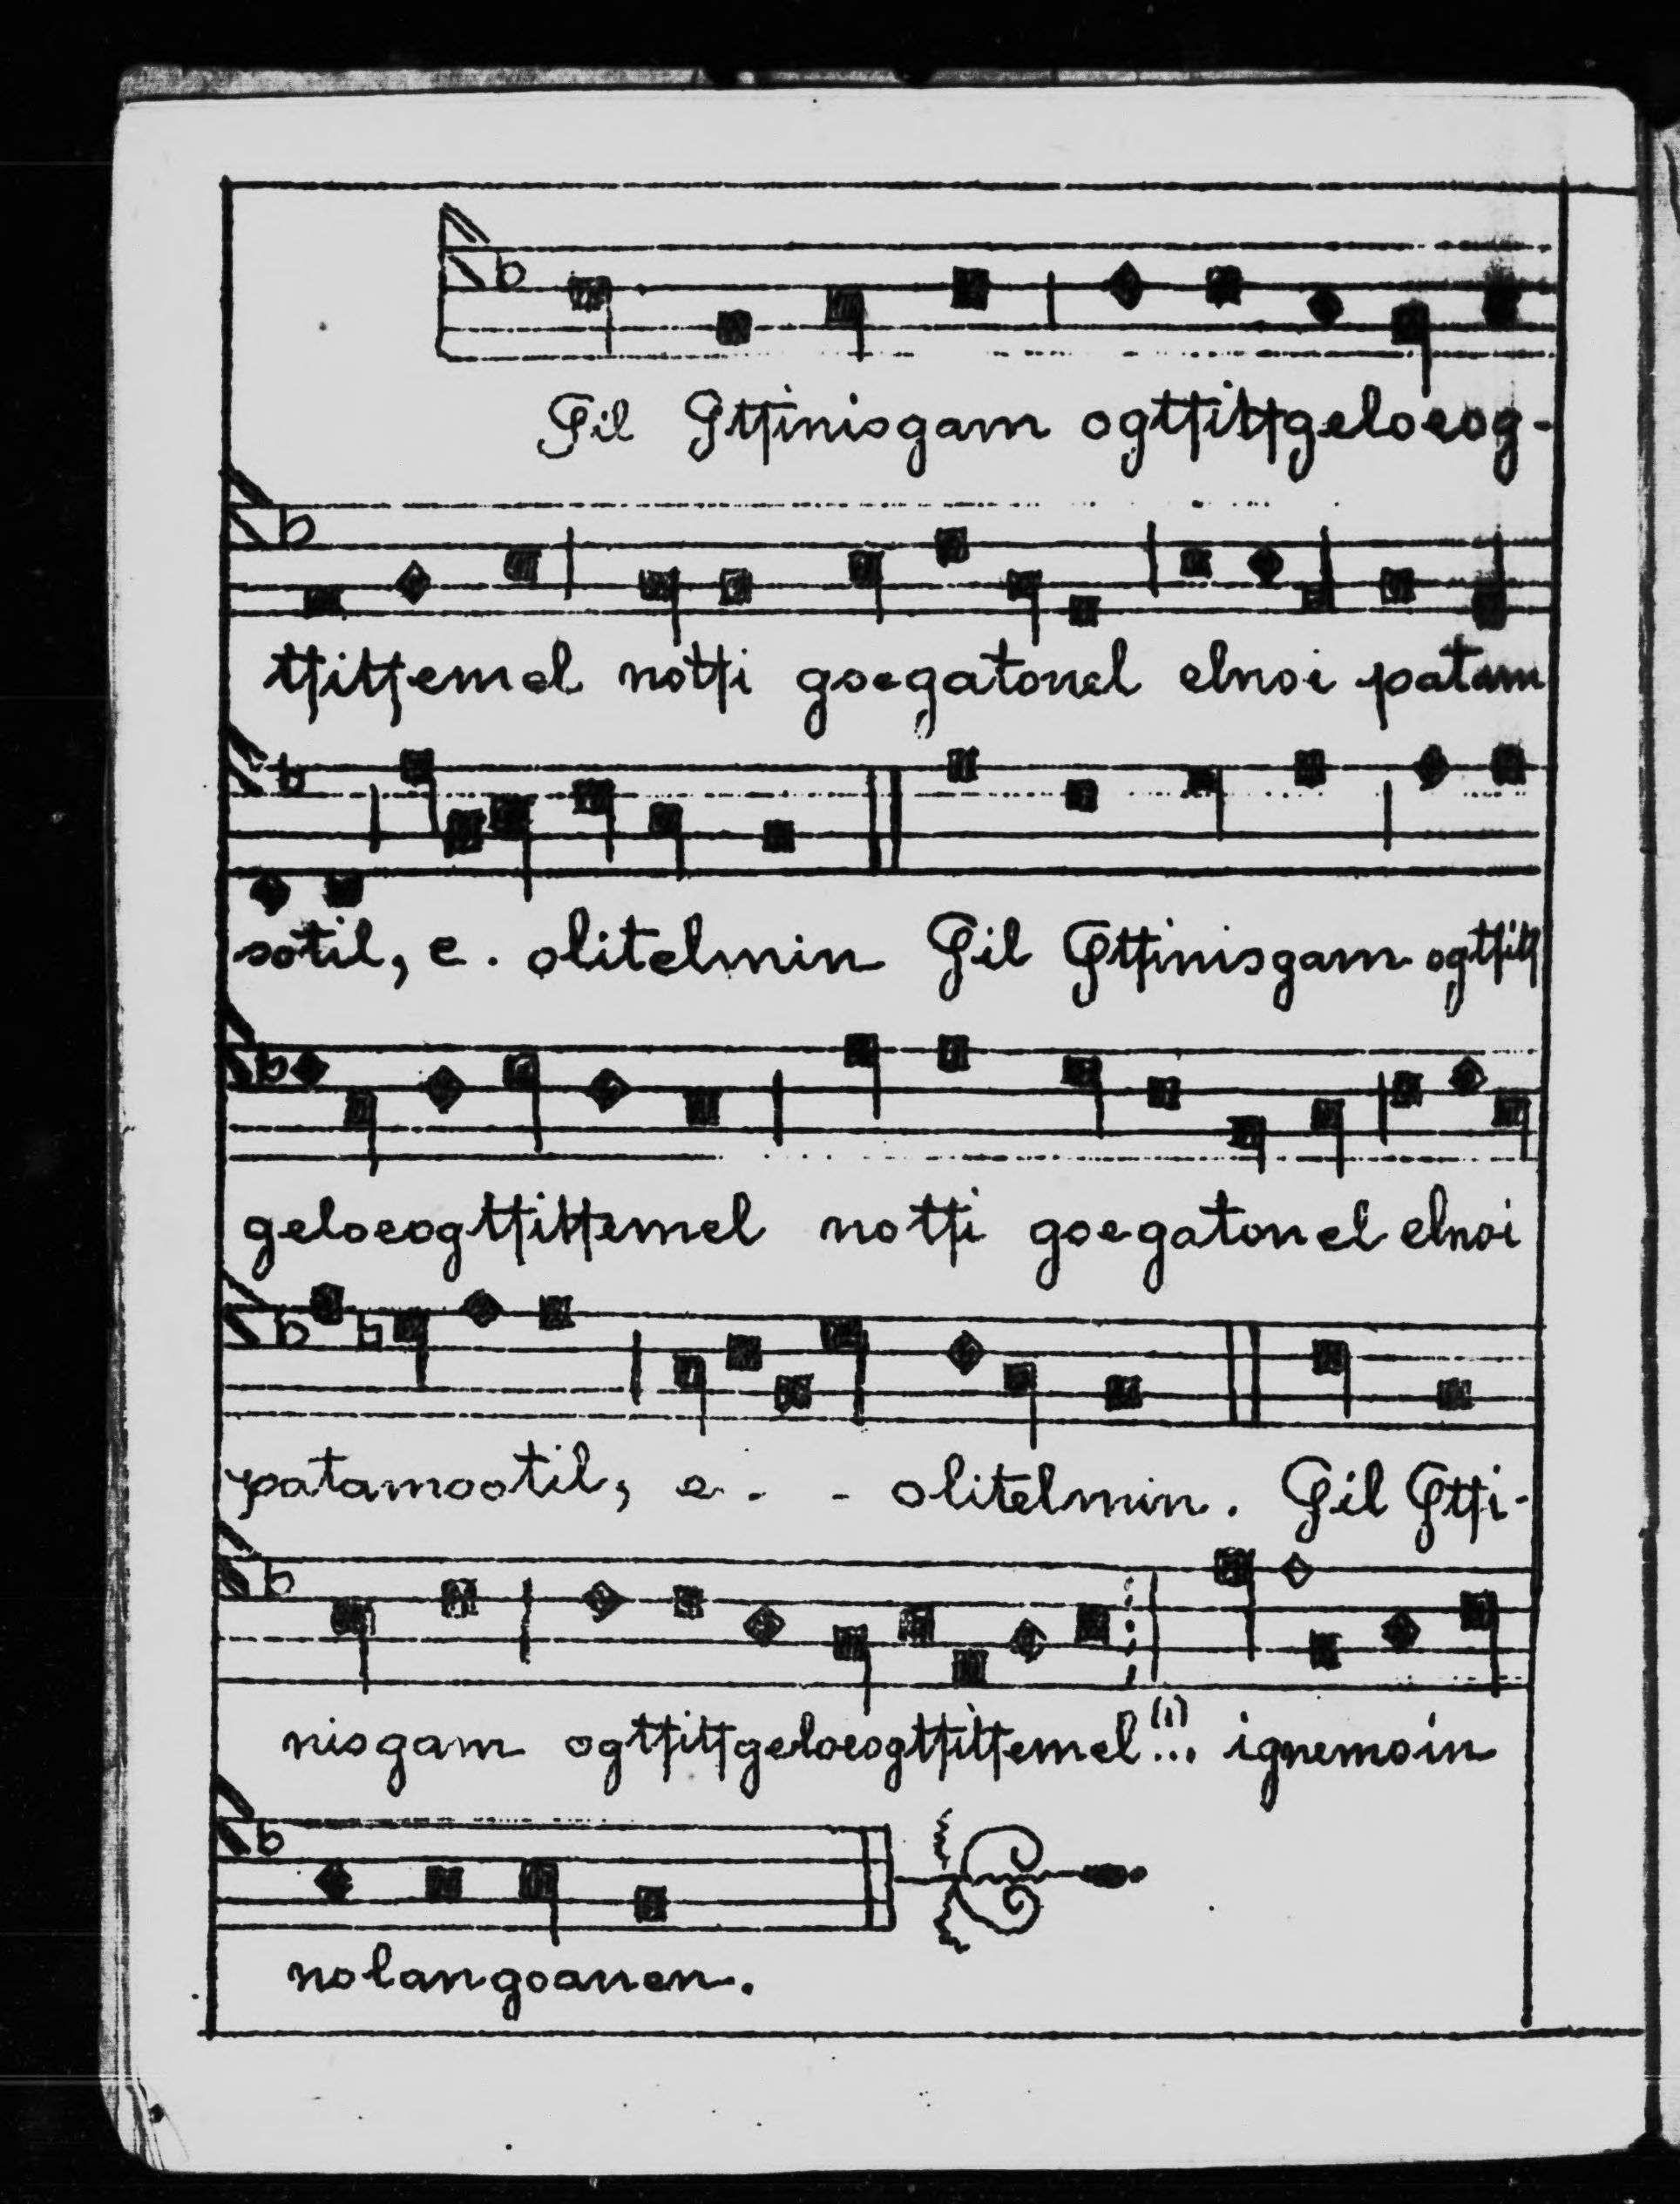 Gil Gtfinisgam ogtfitfgeloeog-
tfitfemel notfi goegatonel elnoi patam
sotil, e. olitelmin Gil Gtfinisgam ogtfitf
geloeogtfitfemel notfi goegatonel elnoi
patamootil, e. - olitelmin. Gil Gtfi-
nisgam ogtfitfgeloeogtfitfemel(1)... ignemoin
nolangoanen.